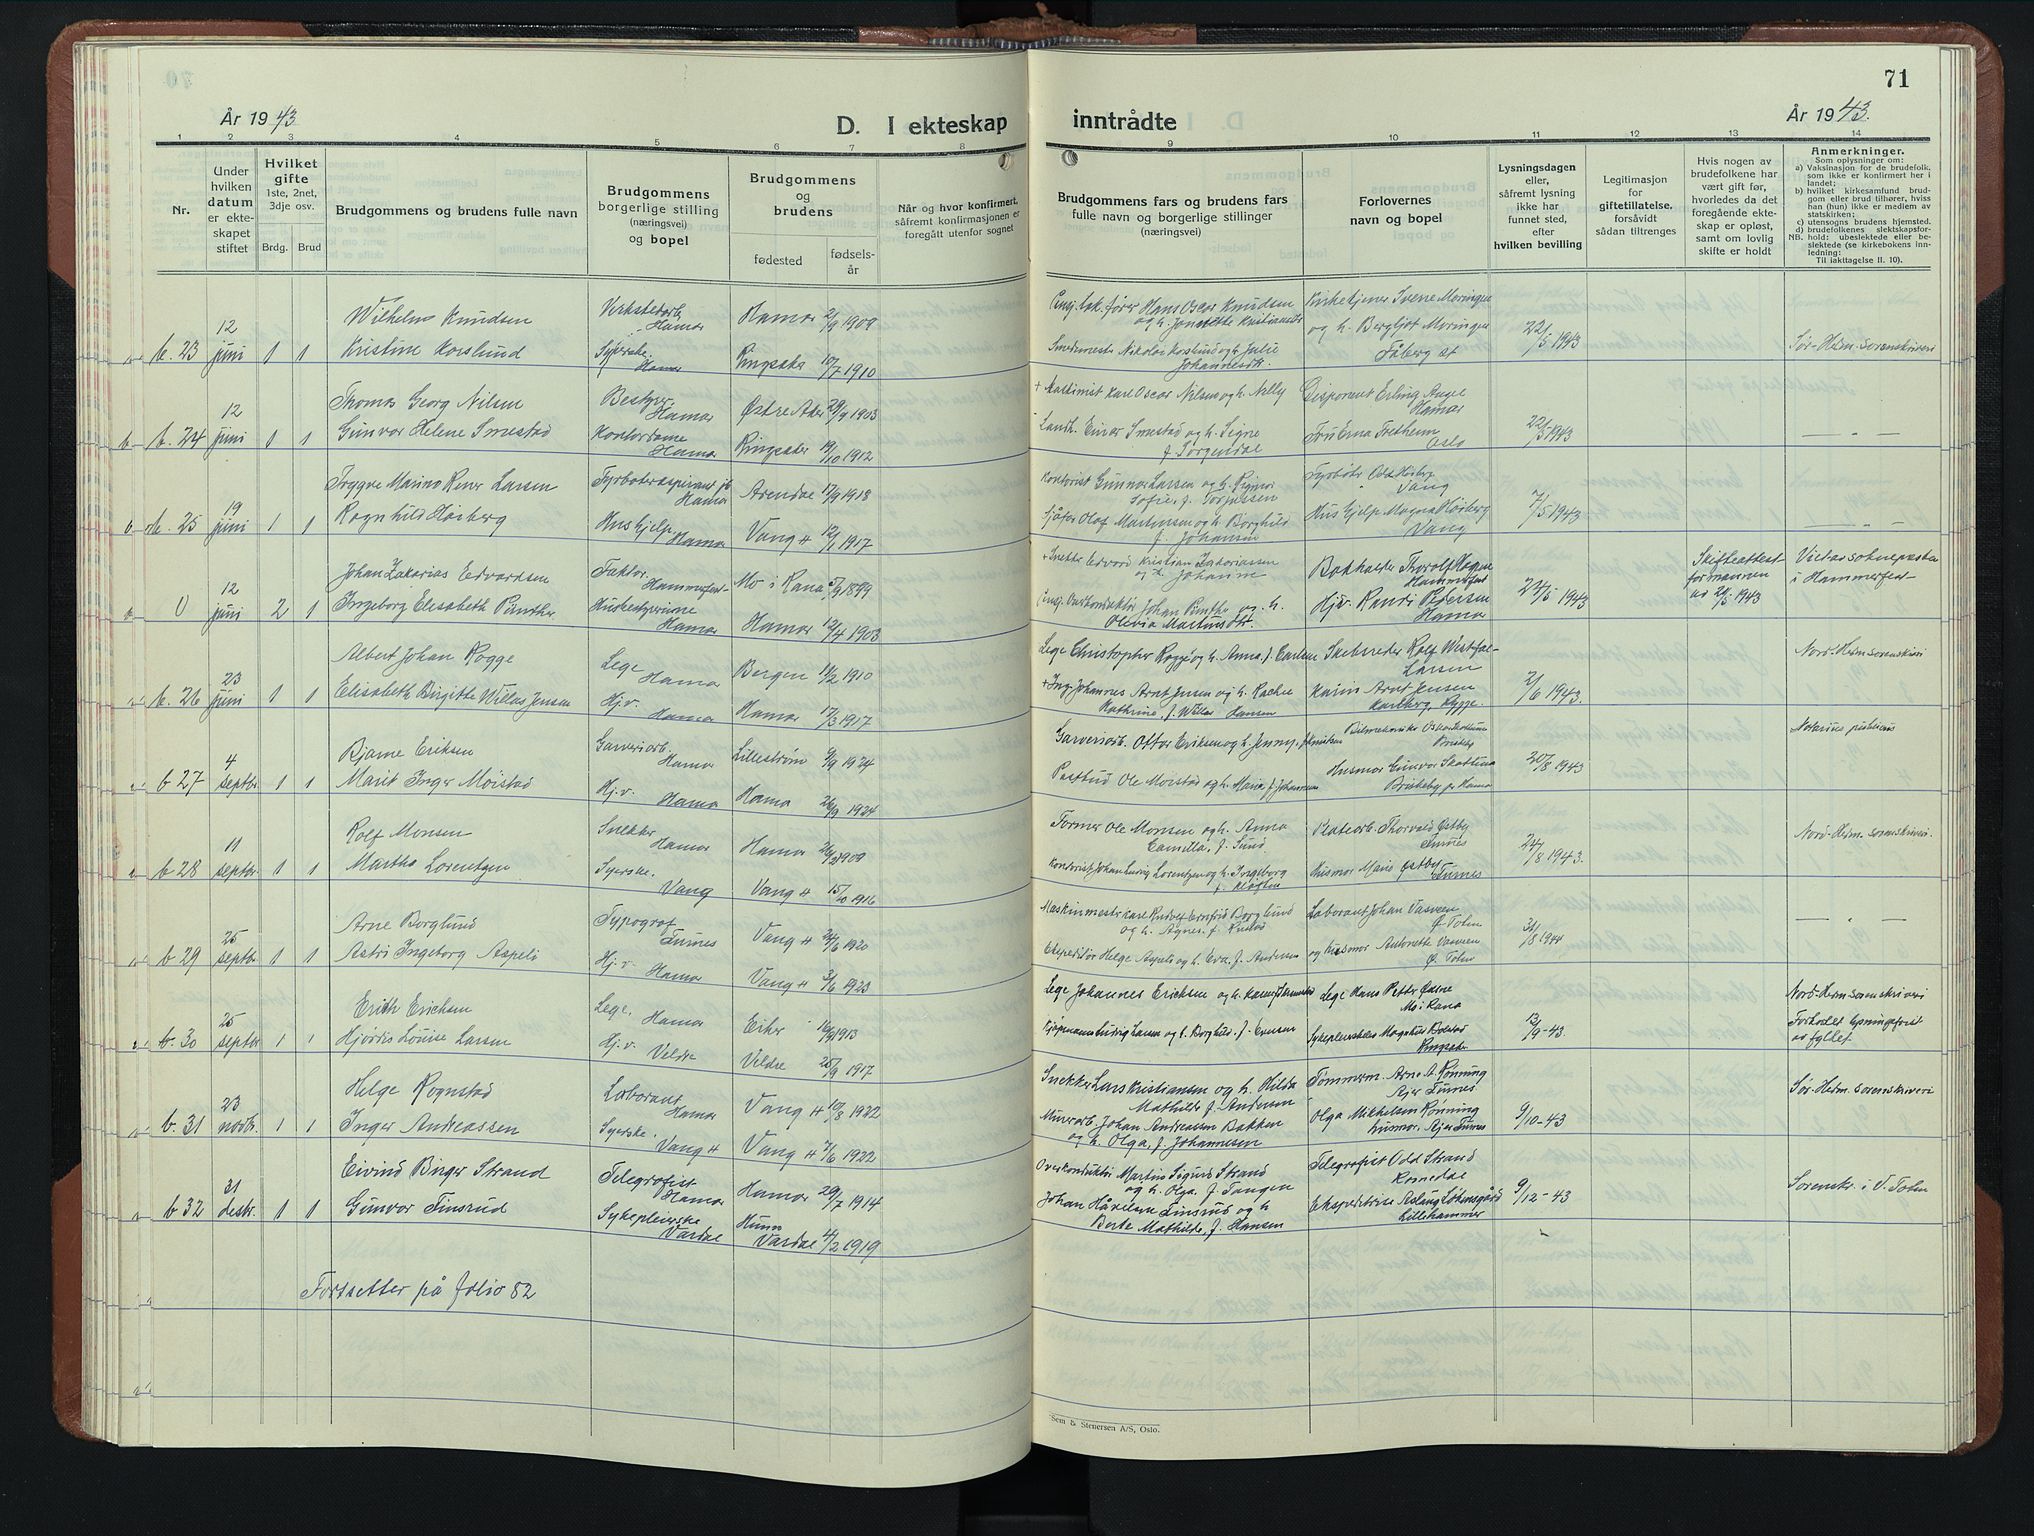 71
År 1943
D. I ekteskap
inntrådte
År 1943.
1 2 3 4 5 6 7 8 9 10 11 12 13 14
Nr.
Under hvilken datum er ekteskapet stiftet
Hvilket gifte
1ste, 2net, 3dje osv.
Brdg. Brud
Brudgommens og brudens fulle navn
Brudgommens borgerlige stilling (næringsvei) og bopel
Brudgommens og brudens
fødested
fødselsår
Når og hvor konfirmert, såfremt konfirmasjonen er foregått utenfor sognet
Brudgommens fars og brudens fars fulle navn og borgerlige stillinger (næringsvei)
Forlovernes navn og bopel
Lysningsdagen eller, såfremt lysning ikke har funnet sted, efter hvilken bevilling
Legitimasjon for giftetillatelse, forsåvidt sådan tiltrenges
Hvis nogen av brudefolkene har vært gift før, hvorledes da det foregående ekteskap er opløst, samt om lovlig skifte er holdt
Anmerkninger.
Som oplysninger om:
a) Vaksinasjon for de brudefolk, som ikke er konfirmert her i landet;
b) hvilket kirkesamfund brudgom eller brud tilhører, hviss han (hun) ikke er medlem av statskirken;
c) utensogns brudens hjemsted.
d) brudefolkenes slektskapsforhold: ubeslektede eller beslektede (se kirkebokens innledning:
NB.
Til iakttagelse II. 10).
b. 23 12 juni 1 1
Wilhelm Knudsen Hamar 2/9 1909
Kristine Korslund Syerske. Hamar Ringsaker 10/7 1910
Hans Oscar Knudsen
og h. Bergljot Moringen
Fåberg st
22/5 1943
Sør-Hedm. sorenskriveri
b. 24 12 juni 1 1
Thomas Georg Nilsen Bestyrer Hamar 29/9 1903
Gunvor Helene Smestad Kontordame Hamar Ringsaker 19/10 1912
Karl Oscar Nilsen og h. Nelly Disponent Erling Aage Hamar
Landh. Einar Smestad og h. Signe f. Jørgendal Fru Erna Fretheim Oslo
22/5 1943
— " —
b. 25 19 juni 1 1
Larsen Hamar Arendal 17/9 1918
Ragnhild Høiberg Hushjelp. Hamar Vang H 12/1 1917
Kontorist Gunnar Larsen og h. Vang
Sjåfør Olaf Martinsen og h. Borghild f. Johansen Hushjelp Magna Høiberg Vang
7/5 1943
— " —
0 12 juni 2 1
Johan Zakarias Edvardsen Faktor. Hammerfest Mo i Rana 1899
Ingeborg Elisabeth Hamar Hamar 12/4 1903
Edvard Kristian Zakariassen Bokholder Thorolf Hammerfest
Johan og h. Olivia Hjv. Randi Pedersen Hamar
24/5 1943
Skifteattest for mannen av 21/5 1943
i Hammerfest
b. 26 23 juni 1 1
Albert Johan Rogge Lege Hamar Bergen 11/2 1910
Elisabeth Birgitte Willas Jensen Hj.v. Hamar Hamar 17/3 1917
Lege Christopher Rogge og h. Anna, f. Carlsen Skibsreder Rolf Westfal-Larsen
Ing. Johannes Arnt Jensen og h. Rachel Kathrine, f. Willas Hansen Karin Arnt Jensen Karlberg, Rygge.
2/6 1943.
Nord-Hedm sorenskriveri
b 27 4 septbr. 1 1
Bjarne Eriksen Garveriarb. Hamar Lillestrøm 9/9 1924
Marit Inger Moistad Hj.v. Hamar Hamar 26/9 1924
Garveriarb. Ottar Eriksen og h. Jenny, f. Knutsen
Postbud Ole Moistad og h. Maria f. Johannesen Husmor Gunvor Skattum Briskeby pr. Hamar
20/8 1943
Notarius publicus
b 28 11 septbr. 1 1
Rolf Monsen Snekker Hamar Hamar 1909
Martha Lorentzen Syerske. Vang Vang H 15/10 1916
Former Ole Monsen og h. Anna Camilla, f. Sund Platearb. Thorvald Østby Furnes
Kontorist Johan Ludvig Lorentzen og h. Ingeborg f. Kløften Husmor Marie Østby Furnes
24/8 1943.
Nord-Hedm. Sorenskriveri.
b 29 25 septbr. 1 1
Arne Borglund Typograf Furnes Vang H 24/6 1920
Astri Ingeborg Aspeli Hj.v. Hamar Vang H 3/6 1923
Maskinmester Karl Borglund og h. Agnes, f. Laborant Johan Vasveen Ø Toten
Ekspeditør Helge Aspeli og h. Eva, f. Andersen og husmor Antonette Vasveen Ø. Toten
31/8 1944
— " —
b. 30 25 septbr. 1 1
Erith Erichsen Lege. Hamar Eiker 1913
Hjørdis Louise Larsen Hj.v. Veldre Veldre 25/9 1917
Lege Johannes Erichsen og h. Lege Hans Petter Mo i Rana
Kjøpmann Ludvig Larsen og h. Borghild, f. Evensen Ringsaker
13/9-43.
Nord-Hedm sorenskriveri
Forkortet lysningsfrist av fylket.
b. 31 23 novbr. 1 1
Helge Rognstad Laborant Hamar Vang H 10/8 1922
Inger Andreassen Syerske. Vang H Vang H 7/6 1922
Snekker Lars Kristiansen og h. Hilda Mathilde f. Andersen Tommerm. Arne A. Rønning Furnes
Murerarb. Johan Andreassen Bakken og h. Olga, f. Johannesen Olga Mikkelsen Rønning husmor, Furnes
9/10-43
Sør-Hedm. Sorenskriveri
b 32 31 desbr. 1 1
Eivind Birger Strand Telegrafist Hamar Hamar 29/7 1914
Gunvor Finsrud Sykepleierske Vardal Hunn Vardal 4/2 1919
Overkonduktør Martin Sigurd Strand og h. Olga, f. Tangen Telegrafist Odd Strand Romedal
Johan Håkelsen Finsrud og h. Berte Mathilde, f. Hansen Ekspeditrise Aslaug Løkensgård Lillehammer
9/12-43
Sorenskr. i V. Toten
Fortsetter på folio 82
Sem & Stenersen A/S, Oslo.